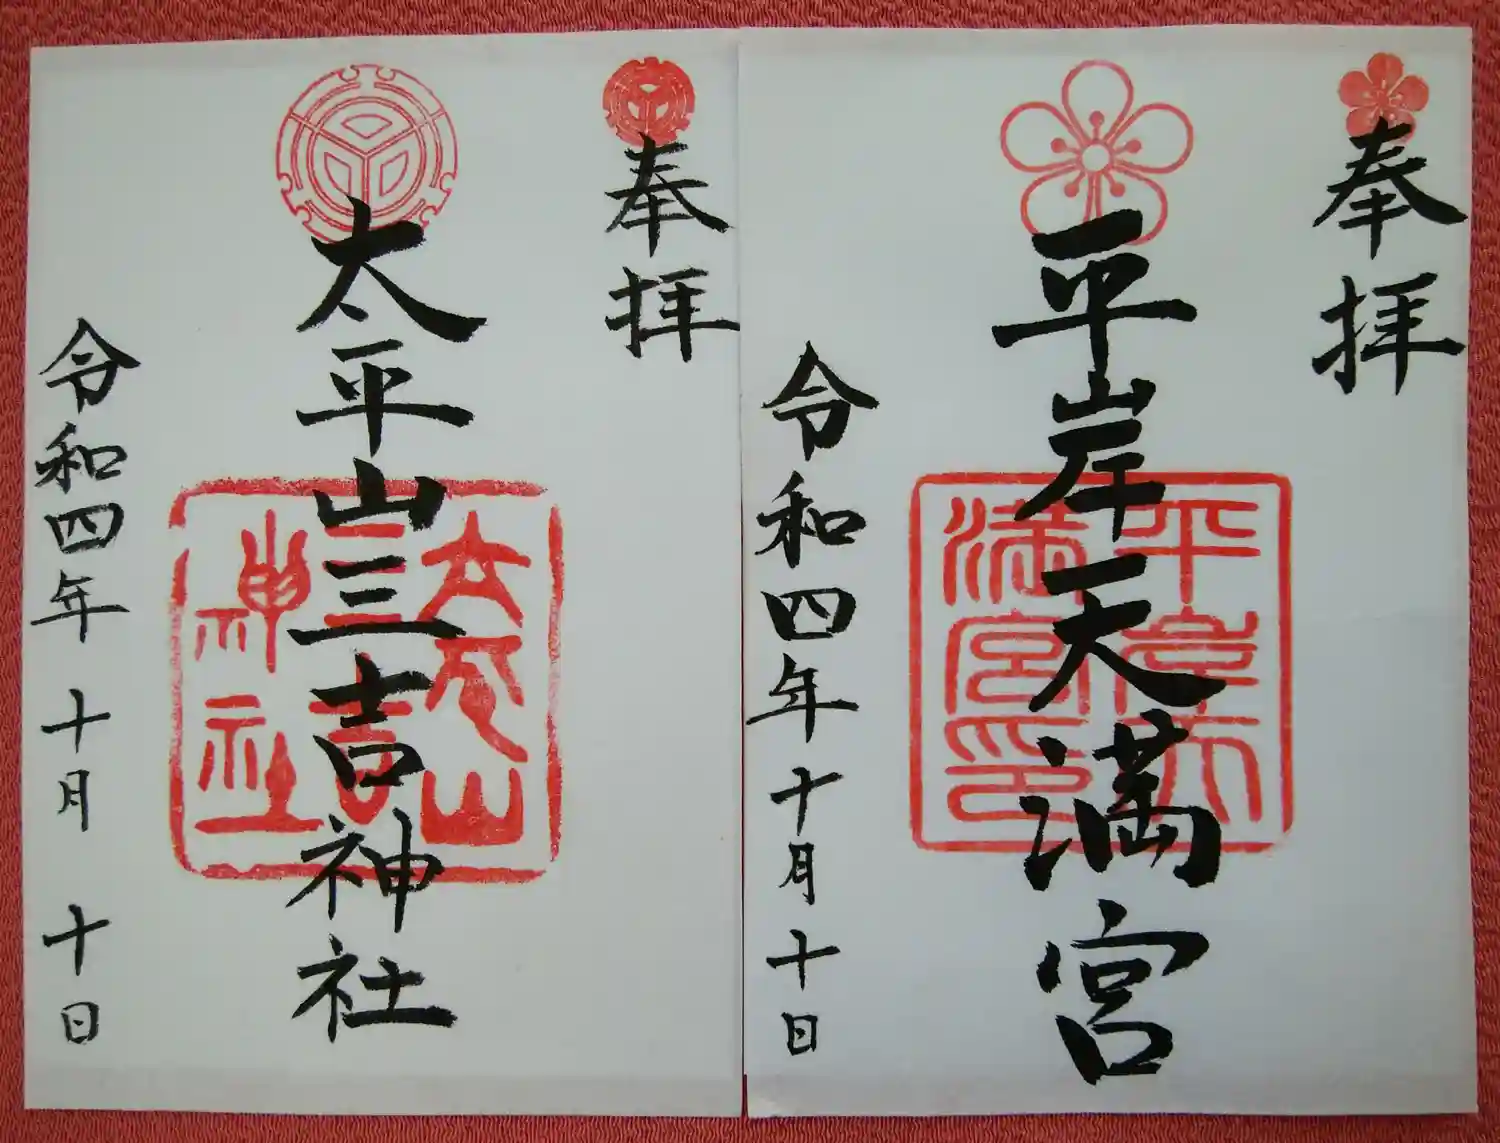 奉拝
平岸天満宮
平岸天満宮印
令和四年十月十日
奉拝
太平山三吉神社
太平山三吉神社
令和四年十月十日